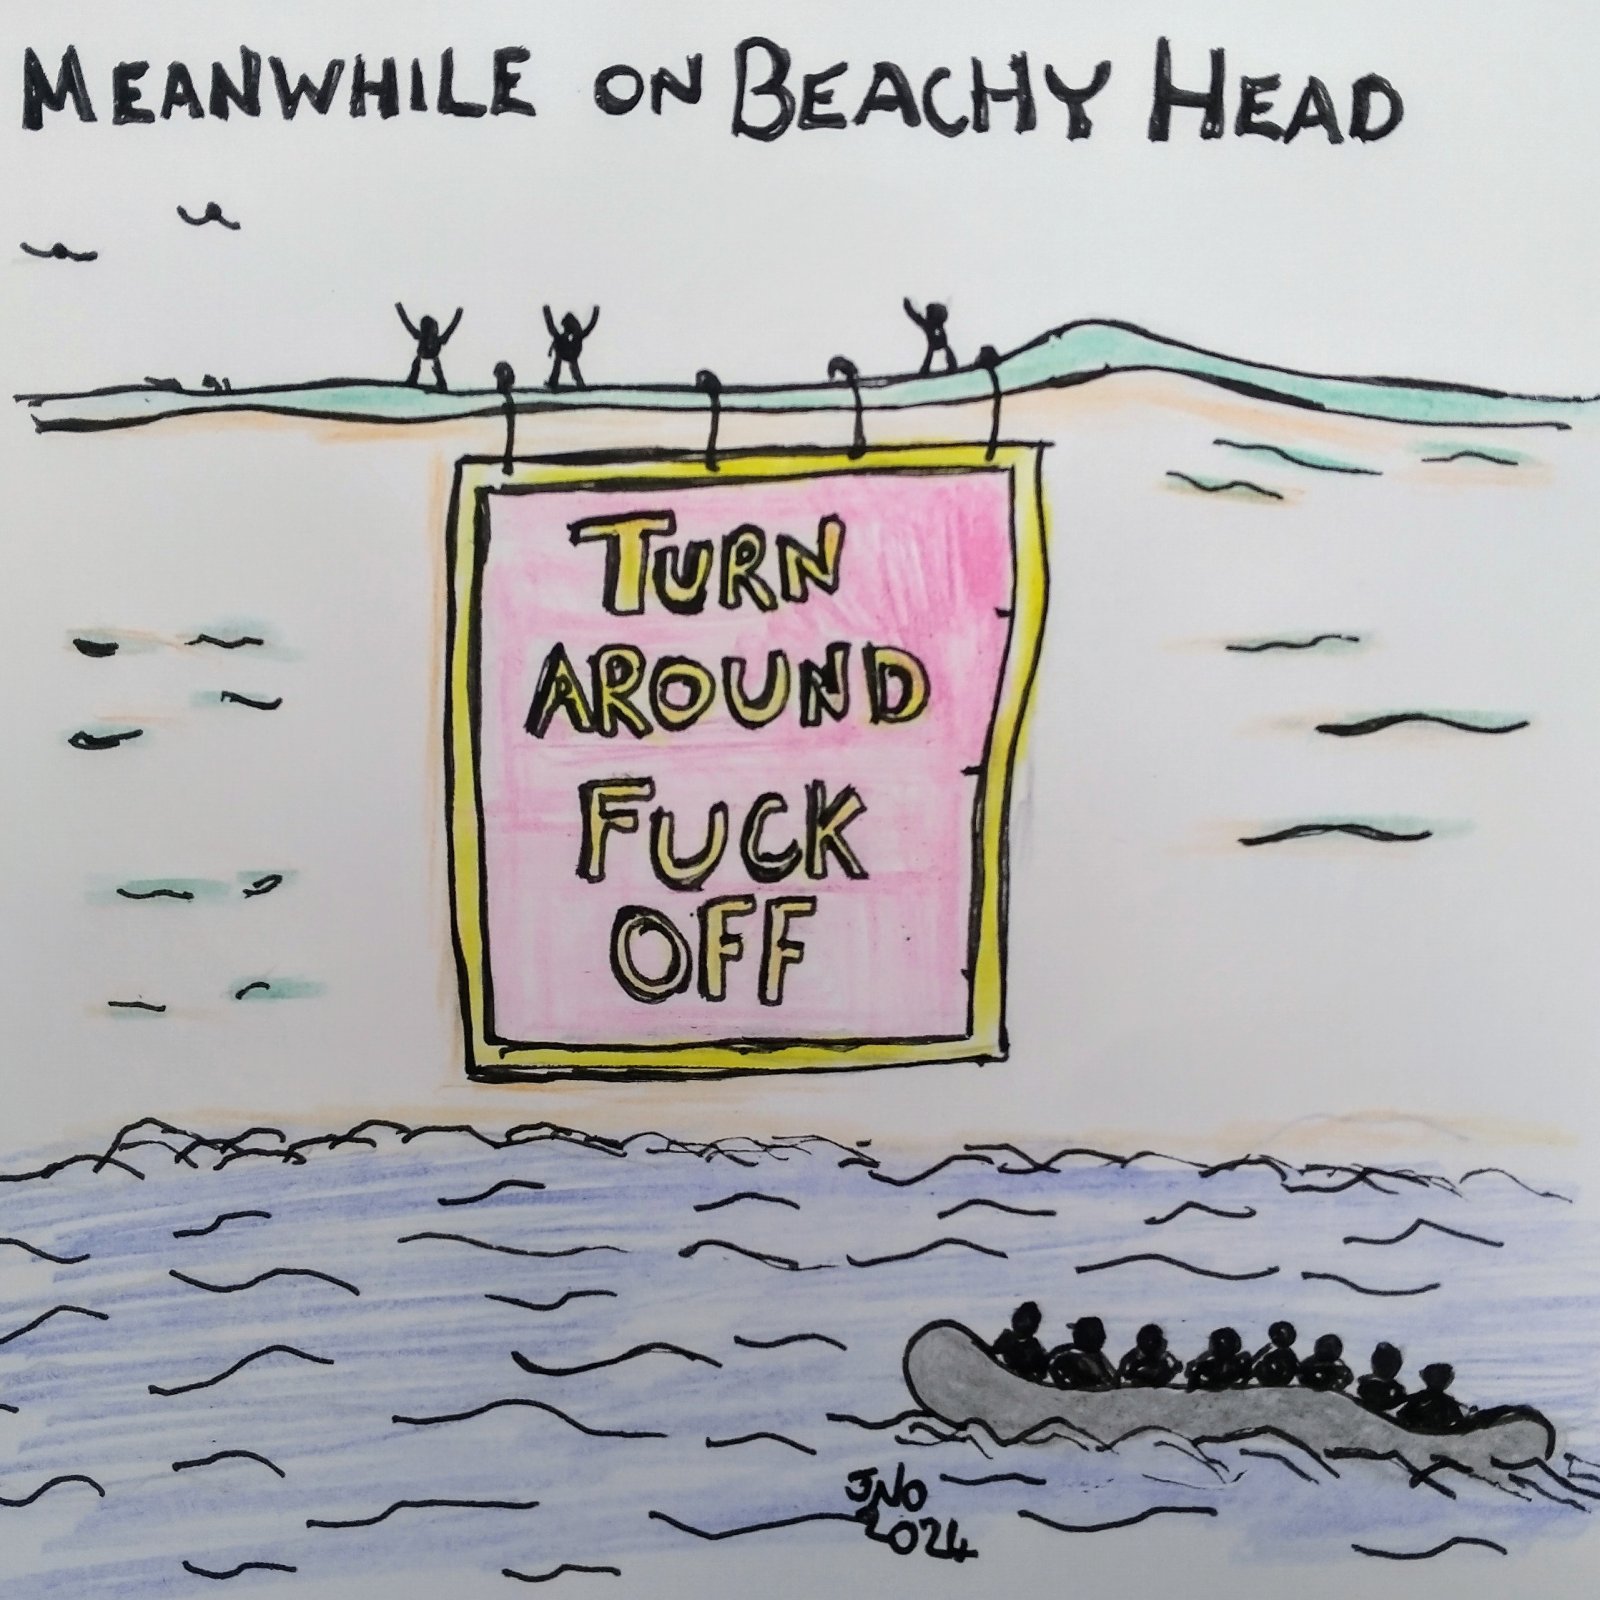 MEANWHILE ON BEACHY HEAD
TURN
AROUND
FUCK
OFF
JNO
2024